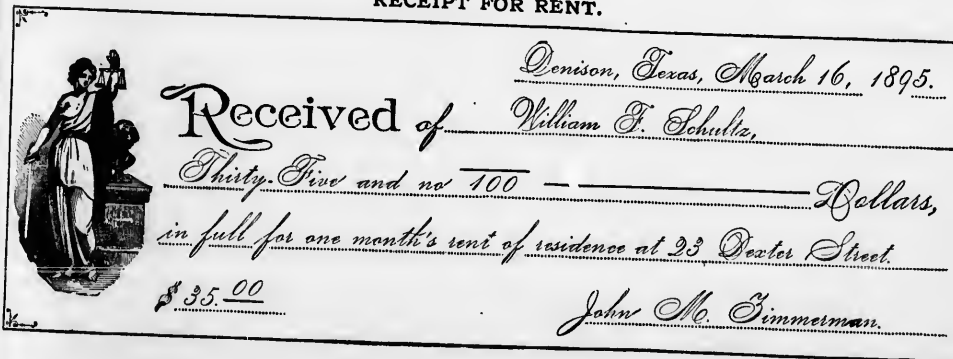 RECEIPT FOR RENT.
Denison, Texas, March 16, 1895.
Received of William F. Schultz,
Thirty-Five and no 100 — Dollars,
in full for one month's rent of residence at 23 Dexter Street.
$ 35.00 John M. Zimmerman.